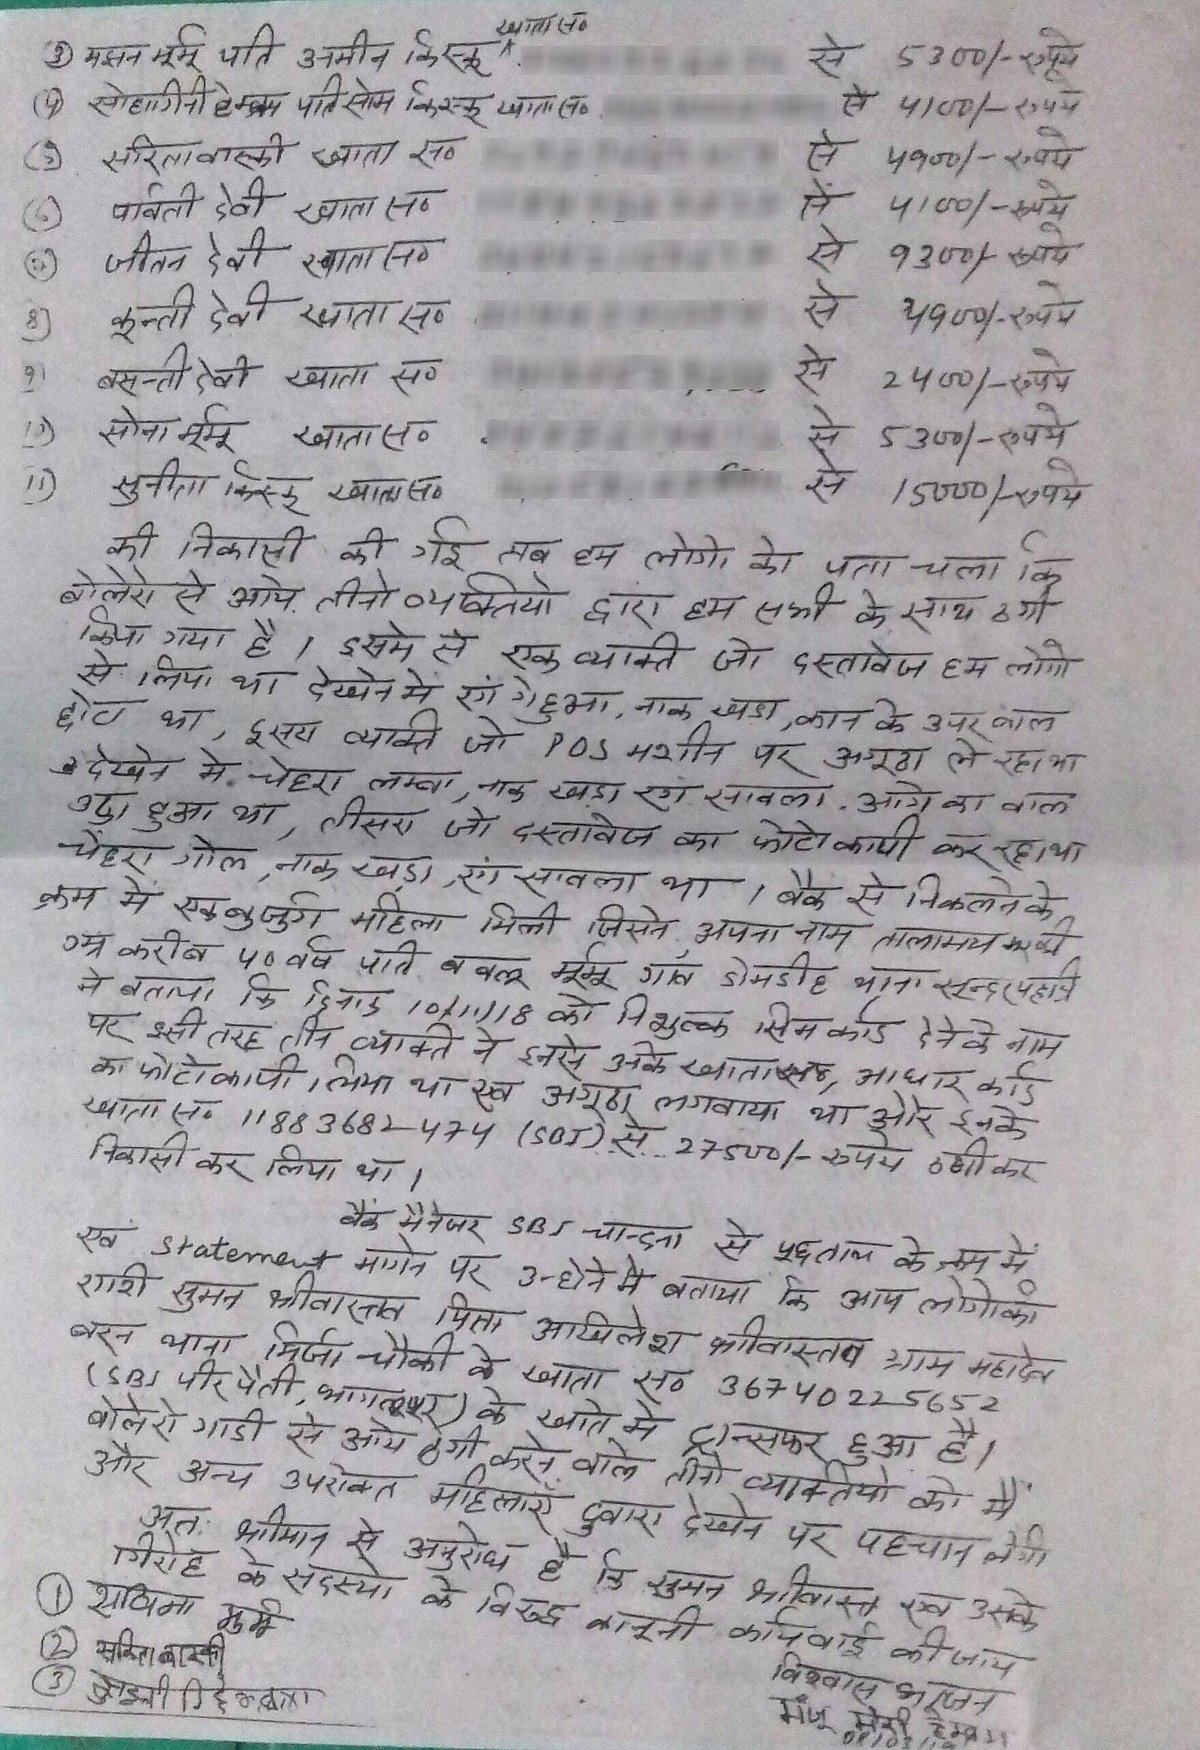 खाता स०
③ मझन मूर्मू पति अमीन किस्कू से 5300/- रुपये
(4) सोहागिनी हेम्ब्रम पति सोम किस्कू खाता स० से 4100/- रुपये
(5) सरिता बास्की खाता स० से 4900/- रुपये
(6) पार्वती देवी खाता स० से 4100/- रुपये
जीतन देवी खाता स० से 9300/- रुपये
8) कुन्ती देवी खाता स० से 4900/- रुपये
9) बसन्ती देवी खाता स० से 2400/- रुपये
10) सोना मूर्मू खाता स० से 5300/- रुपये
11) सुनीता किस्कू खाता स० से 15000/- रुपये
की निकासी की गई तब हम लोगो को पता चला कि
बोलेरो से आये तीनो व्यक्तियो द्वारा हम सभी के साथ ठगी
किया गया है । इसमे से एक व्यक्ति जो दस्तावेज हम लोगो
से लिया था देखने में रंग गेहुआ, नाक खडा, कान के उपर बाल
छोटा था, दूसरा व्यक्ति जो POS मशीन पर अगूठा ले रहा था
देखने मे चेहरा लम्बा, नाक खडा रंग सावला, आगे का बाल
उठा हुआ था, तीसरा जो दस्तावेज का फोटो कापी कर रहा था
चेहरा गोल, नाक खडा, रंग सावला था । बैंक से निकलने के
क्रम में एक बुजुर्ग महिला मिली जिसने अपना नाम तालामय
उम्र करीब 50 वर्ष पति बबलू मूर्मू गाँव डोमडीह थाना सुन्दरपहाडी
ने बताया कि दिनांक 10/11/18 को निशुल्क सिम कार्ड देने के नाम
पर इसी तरह तीन व्यक्ति ने इनसे उनके खाता स०, आधार कार्ड
का फोटो कापी लिया था एव अगूठा लगवाया था और इनके
खाता स० 11883682474 (SBI) से 27500/- रुपये ठगी कर
निकासी कर लिया था ।
बैंक मैनेजर SBI चान्दना से पूछताछ के क्रम में
एवं statement मागने पर उन्होने ने बताया कि आप लोगो का
राशी सुमन श्रीवास्तव पिता अखिलेश श्रीवास्तव ग्राम महादेव
बरन थाना मिर्जा चौकी के खाता स० 36740225652
(SBI पीरपैती, भागलपुर) के खाते मे ट्रान्सफर हुआ है ।
बोलेरो गाडी से आये ठगी करने वाले तीनो व्यक्तियो को मैं
और अन्य उपरोक्त महिलाएँ दुवारा देखने पर पहचान लेगी
अतः श्रीमान से अनुरोध है कि सुमन श्रीवास्त एव उसके
गिरोह के सदस्यो के विरुद्ध कानूनी कार्यवाई की जाय
① मुर्मू
② सरिता बास्की
③
विश्वास भाजन
मंजू